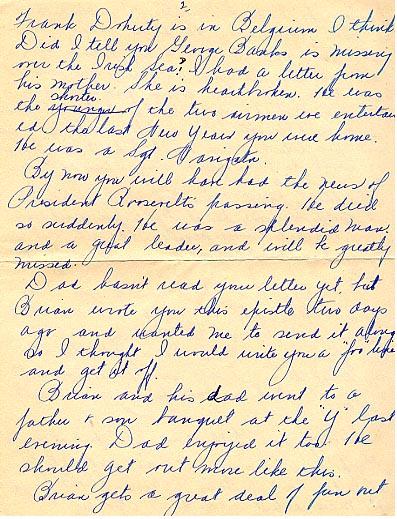 2
Frank Doherty is in Belgium I think
Did I tell you George Banks is missing
over the Irish Sea? I had a letter from
his mother. She is heartbroken. He was
shorter
the younger of the two airmen we entertain
ed the last New Years you were home.
He was a Sgt. Navigator.
By now you will have had the news of
President Roosevelts passing. He died
so suddenly. He was a splendid man.
and a great leader, and will be greatly
missed.
Dad hasn't read you letter yet, but
Brian wrote you this epistle two days
ago and wanted me to send it along
So I thought I would write you a "few" lines
and get it off.
Brian and his dad went to a
father & son banquet at the "Y" last
evening. Dad enjoyed it too. He
should get out more like this.
Brian gets a great deal of fun out